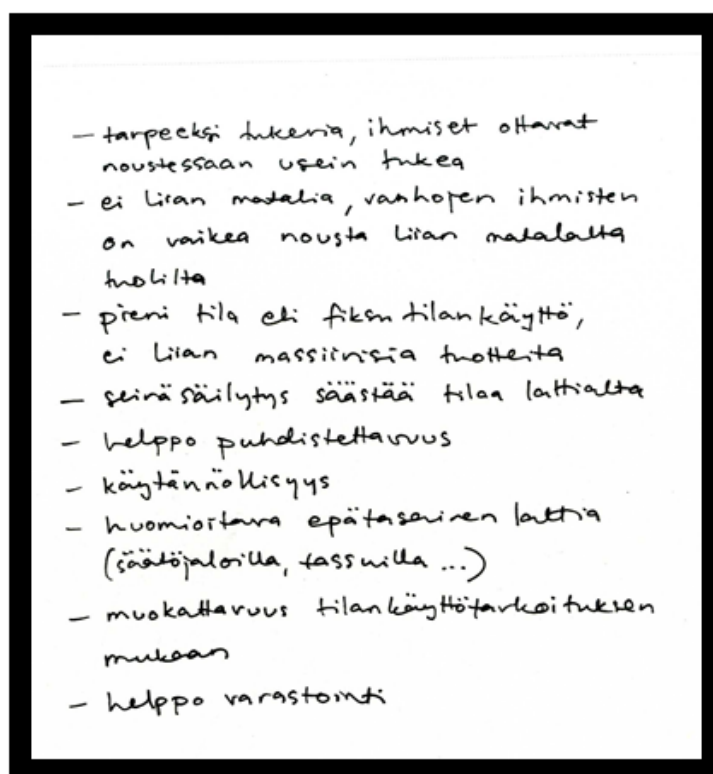 – tarpeeksi tukevia, ihmiset ottavat
noustessaan usein tukea
– ei liian matalia, vanhojen ihmisten
on vaikea nousta liian matalalta
tuolilta
– pieni tila eli fiksu tilankäyttö,
ei liian massiivisia tuotteita
– seinäsäilytys säästää tilaa lattialta
– helppo puhdistettavuus
– käytännöllisyys
– huomioitava epätasainen lattia
(säätöjaloilla, tassuilla ...)
– muokattavuus tilankäyttötarkoituksen
mukaan
– helppo varastointi